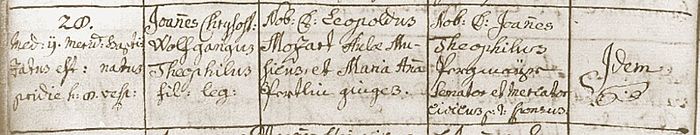 28.
med: 11. merid: baptizatus est: natus
pridie h: 8. vesp:
Joañes Chrysost:
Wolfgangus
Theophilus
fil: leg:
Nob: D: Leopoldus
Mozart Aulæ Musicus et Maria Aña
Pertlin giuges.
Nob: D: Joañes
Theophilus
Pergmayr
Senator et Mercator
civicus p: t: sponsus
Idem